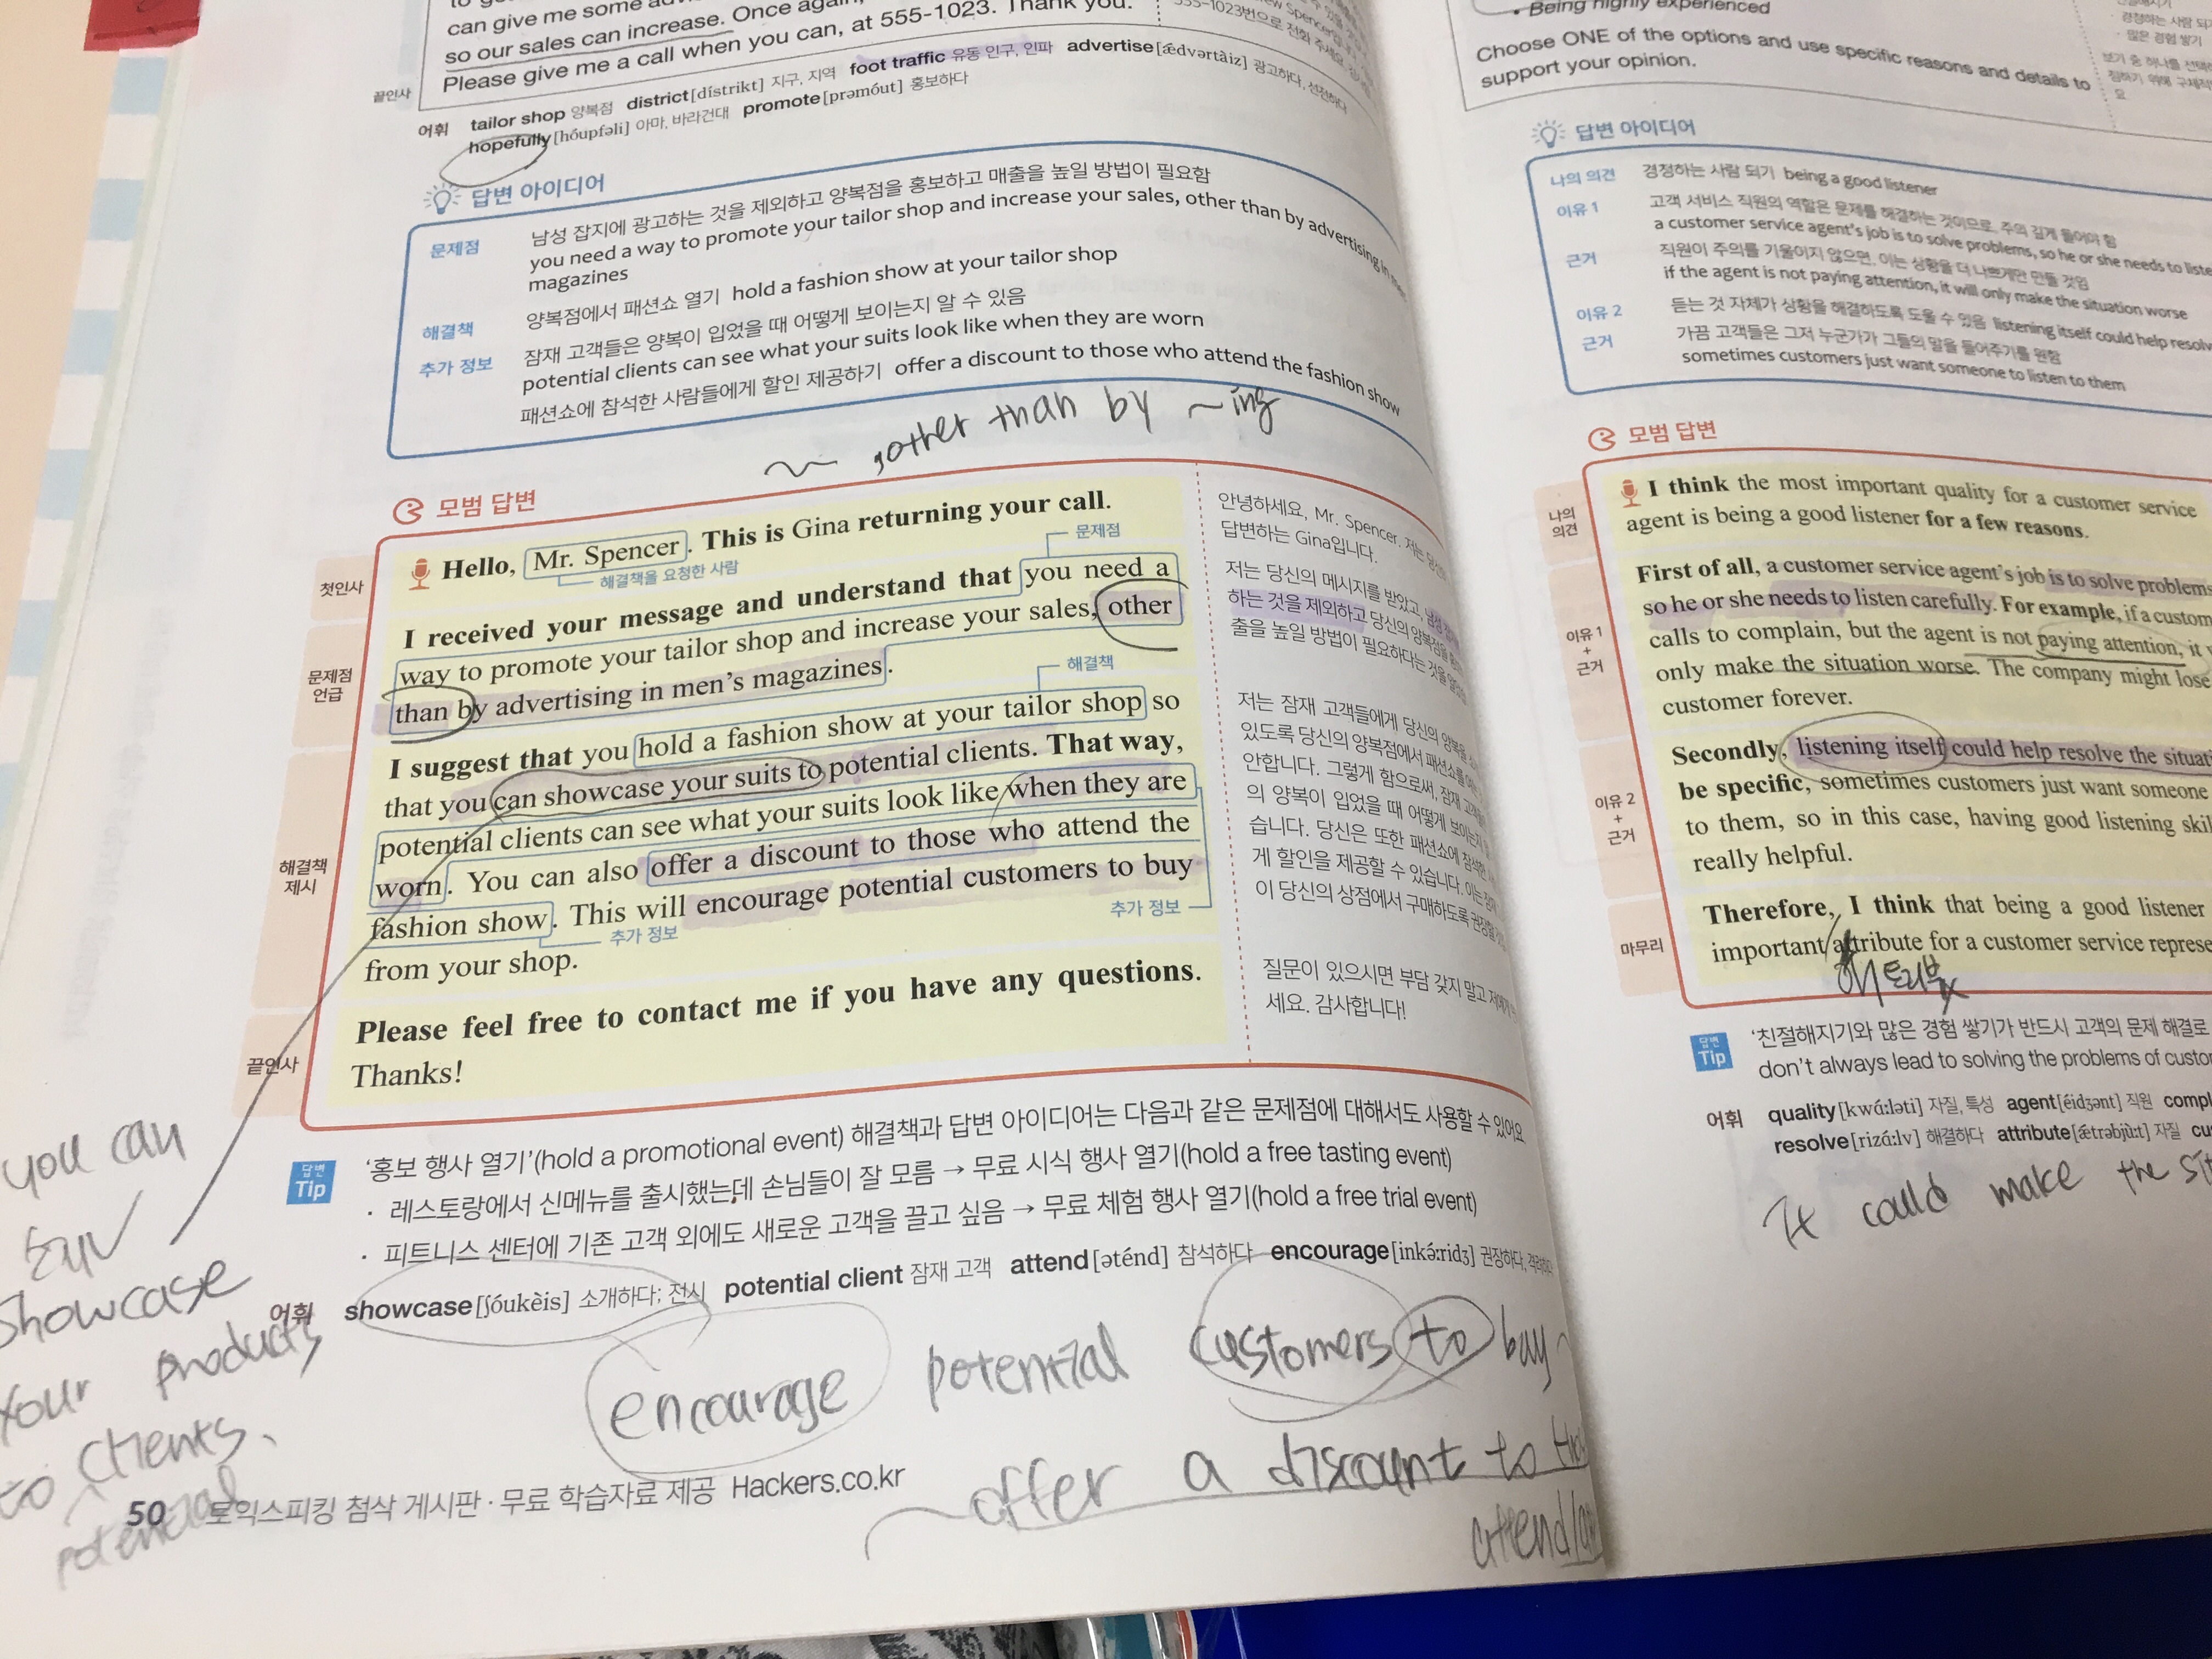 can give me some
so our sales can increase. Once again,
Please give me a call when you can, at 555-1023. Thank you.
555-1023번으로 전화 주세요.
끝인사
어휘 tailor shop 양복점 district[dístrikt] 지구, 지역 foot traffic 유동 인구, 인파 advertise[ǽdvərtàiz] 광고하다, 선전하다
hopefully[hóupfəli] 아마, 바라건대 promote[prəmóut] 홍보하다
답변 아이디어
문제점 남성 잡지에 광고하는 것을 제외하고 양복점을 홍보하고 매출을 높일 방법이 필요함
you need a way to promote your tailor shop and increase your sales, other than by advertising in men's
magazines
해결책 양복점에서 패션쇼 열기 hold a fashion show at your tailor shop
추가 정보 잠재 고객들은 양복이 입었을 때 어떻게 보이는지 알 수 있음
potential clients can see what your suits look like when they are worn
패션쇼에 참석한 사람들에게 할인 제공하기 offer a discount to those who attend the fashion show
~ , other than by ~ing
모범 답변
첫인사
Hello, Mr. Spencer. This is Gina returning your call.
해결책을 요청한 사람
문제점
문제점
언급
I received your message and understand that you need a
way to promote your tailor shop and increase your sales, other
than by advertising in men's magazines.
해결책
해결책
제시
I suggest that you hold a fashion show at your tailor shop so
that you can showcase your suits to potential clients. That way,
potential clients can see what your suits look like when they are
worn. You can also offer a discount to those who attend the
fashion show. This will encourage potential customers to buy
추가 정보
추가 정보
from your shop.
끝인사
Please feel free to contact me if you have any questions.
Thanks!
안녕하세요, Mr. Spencer. 저는
답변하는 Gina입니다.
저는 당신의 메시지를 받았고,
하는 것을 제외하고 당신의 양복점을
출을 높일 방법이 필요하다는 것을
저는 잠재 고객들에게 당신의 양복을
있도록 당신의 양복점에서 패션쇼를
안합니다. 그렇게 함으로써, 잠재
의 양복이 입었을 때 어떻게 보이는지
습니다. 당신은 또한 패션쇼에
게 할인을 제공할 수 있습니다.
이 당신의 상점에서 구매하도록
질문이 있으시면 부담 갖지 말고
세요. 감사합니다!
답변
Tip
'홍보 행사 열기'(hold a promotional event) 해결책과 답변 아이디어는 다음과 같은 문제점에 대해서도 사용할 수 있어요.
· 레스토랑에서 신메뉴를 출시했는데 손님들이 잘 모름 → 무료 시식 행사 열기(hold a free tasting event)
· 피트니스 센터에 기존 고객 외에도 새로운 고객을 끌고 싶음 → 무료 체험 행사 열기(hold a free trial event)
어휘 showcase[ʃóukèis] 소개하다; 전시 potential client 잠재 고객 attend[əténd] 참석하다 encourage[inkə́:ridʒ] 권장하다,
you can
showcase
your products
to clients.
potential
encourage potential customers to buy ~
~ offer a discount to
attend
50 토익스피킹 첨삭 게시판 · 무료 학습자료 제공 Hackers.co.kr
• Being highly experienced
Choose ONE of the options and use specific reasons and details to
support your opinion.
답변 아이디어
나의 의견 경청하는 사람 되기 being a good listener
이유 1 고객 서비스 직원의 역할은 문제를 해결하는 것이므로, 주의 깊게 들어야 함
a customer service agent's job is to solve problems, so he or she needs to
근거 직원이 주의를 기울이지 않으면, 이는 상황을 더 나쁘게만 만들 것임
if the agent is not paying attention, it will only make the situation worse
이유 2 듣는 것 자체가 상황을 해결하도록 도울 수 있음 listening itself could help
근거 가끔 고객들은 그저 누군가가 그들의 말을 들어주기를 원함
sometimes customers just want someone to listen to them
모범 답변
나의
의견
I think the most important quality for a customer service
agent is being a good listener for a few reasons.
이유 1
+
근거
First of all, a customer service agent's job is to solve problems
so he or she needs to listen carefully. For example, if a
calls to complain, but the agent is not paying attention, it
only make the situation worse. The company might lose
customer forever.
이유 2
+
근거
Secondly, listening itself could help resolve the
be specific, sometimes customers just want someone
to them, so in this case, having good listening
really helpful.
마무리
Therefore, I think that being a good listener
important attribute for a customer service
답변
Tip
'친절해지기와 많은 경험 쌓기가 반드시 고객의 문제 해결로
don't always lead to solving the problems of
어휘 quality[kwɑ́:ləti] 자질, 특성 agent[éidʒənt] 직원
resolve[rizɑ́:lv] 해결하다 attribute[ǽtrəbjù:t] 자질
It could make the